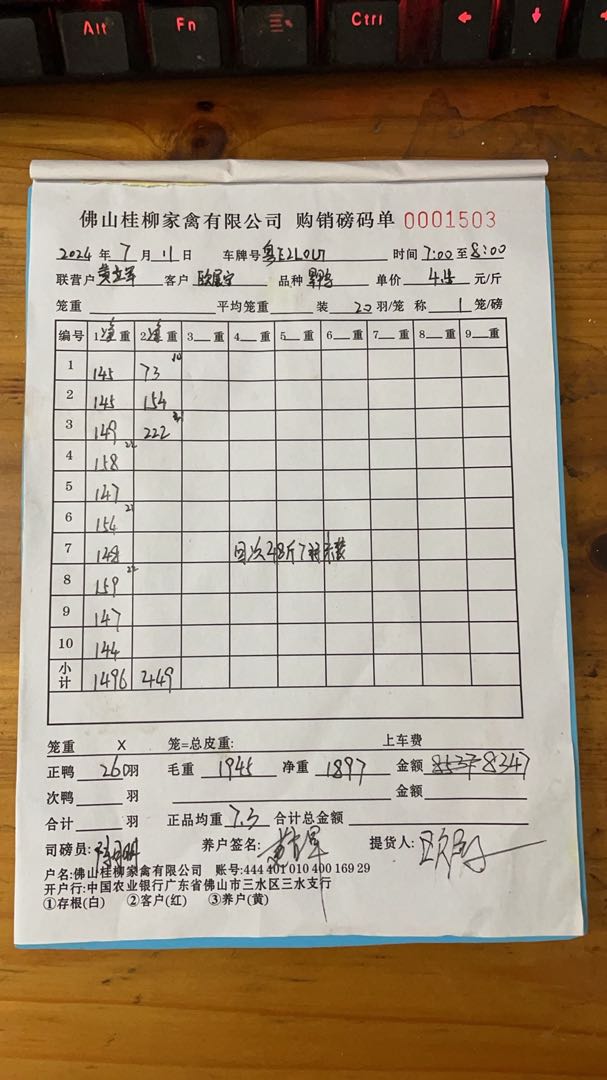 Alt Fn Ctrl
佛山桂柳家禽有限公司 购销磅码单 0001503
2024 年 7 月 11 日 车牌号 粤E 时间 7:00 至 8:00
联营户 客户 品种 单价 4.4 元/斤
笼重 平均笼重 装 20 羽/笼 称 1 笼/磅
编号 1 重 2 重 3 重 4 重 5 重 6 重 7 重 8 重 9 重
1 145 73 10
2 145 154
3 149 222
4 158 22
5 147
6 154 21
7 148 回次48斤7羽未装
8 159 22
9 147
10 144
小计 1496 449
笼重 X 笼=总皮重: 上车费
正鸭 260 羽 毛重 1945 净重 1897 金额 8537 8347
次鸭 羽 金额
合计 羽 正品均重 7.3 合计总金额
司磅员: 养户签名: 提货人:
户名:佛山桂柳家禽有限公司 账号:444 401 010 400 169 29
开户行:中国农业银行广东省佛山市三水区三水支行
①存根(白) ②客户(红) ③养户(黄)